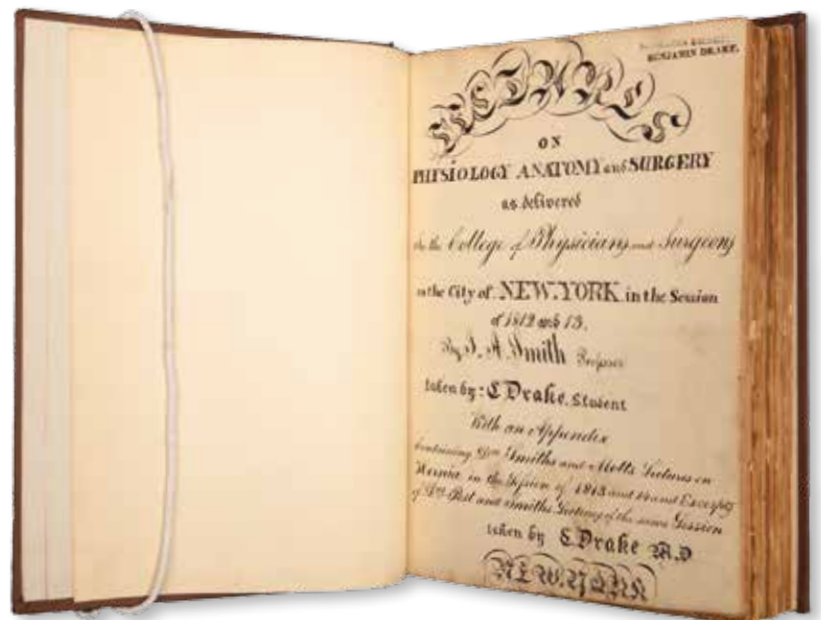 BENJAMIN DRAKE.
LECTURES
ON
PHYSIOLOGY ANATOMY and SURGERY
as delivered
In the College of Physicians and Surgeons
in the City of NEW.YORK in the Session
of 1812 and 13.
By J. A. Smith Professor
taken by: C Drake, Student
With an Appendix
Containing Drs Smiths and Motts Lectures on
Hernia in the Session of 1813 and 14 and Excerpts
of Drs Post and Smiths Lectures of the same Session
taken by C. Drake M.D
NEW.YORK